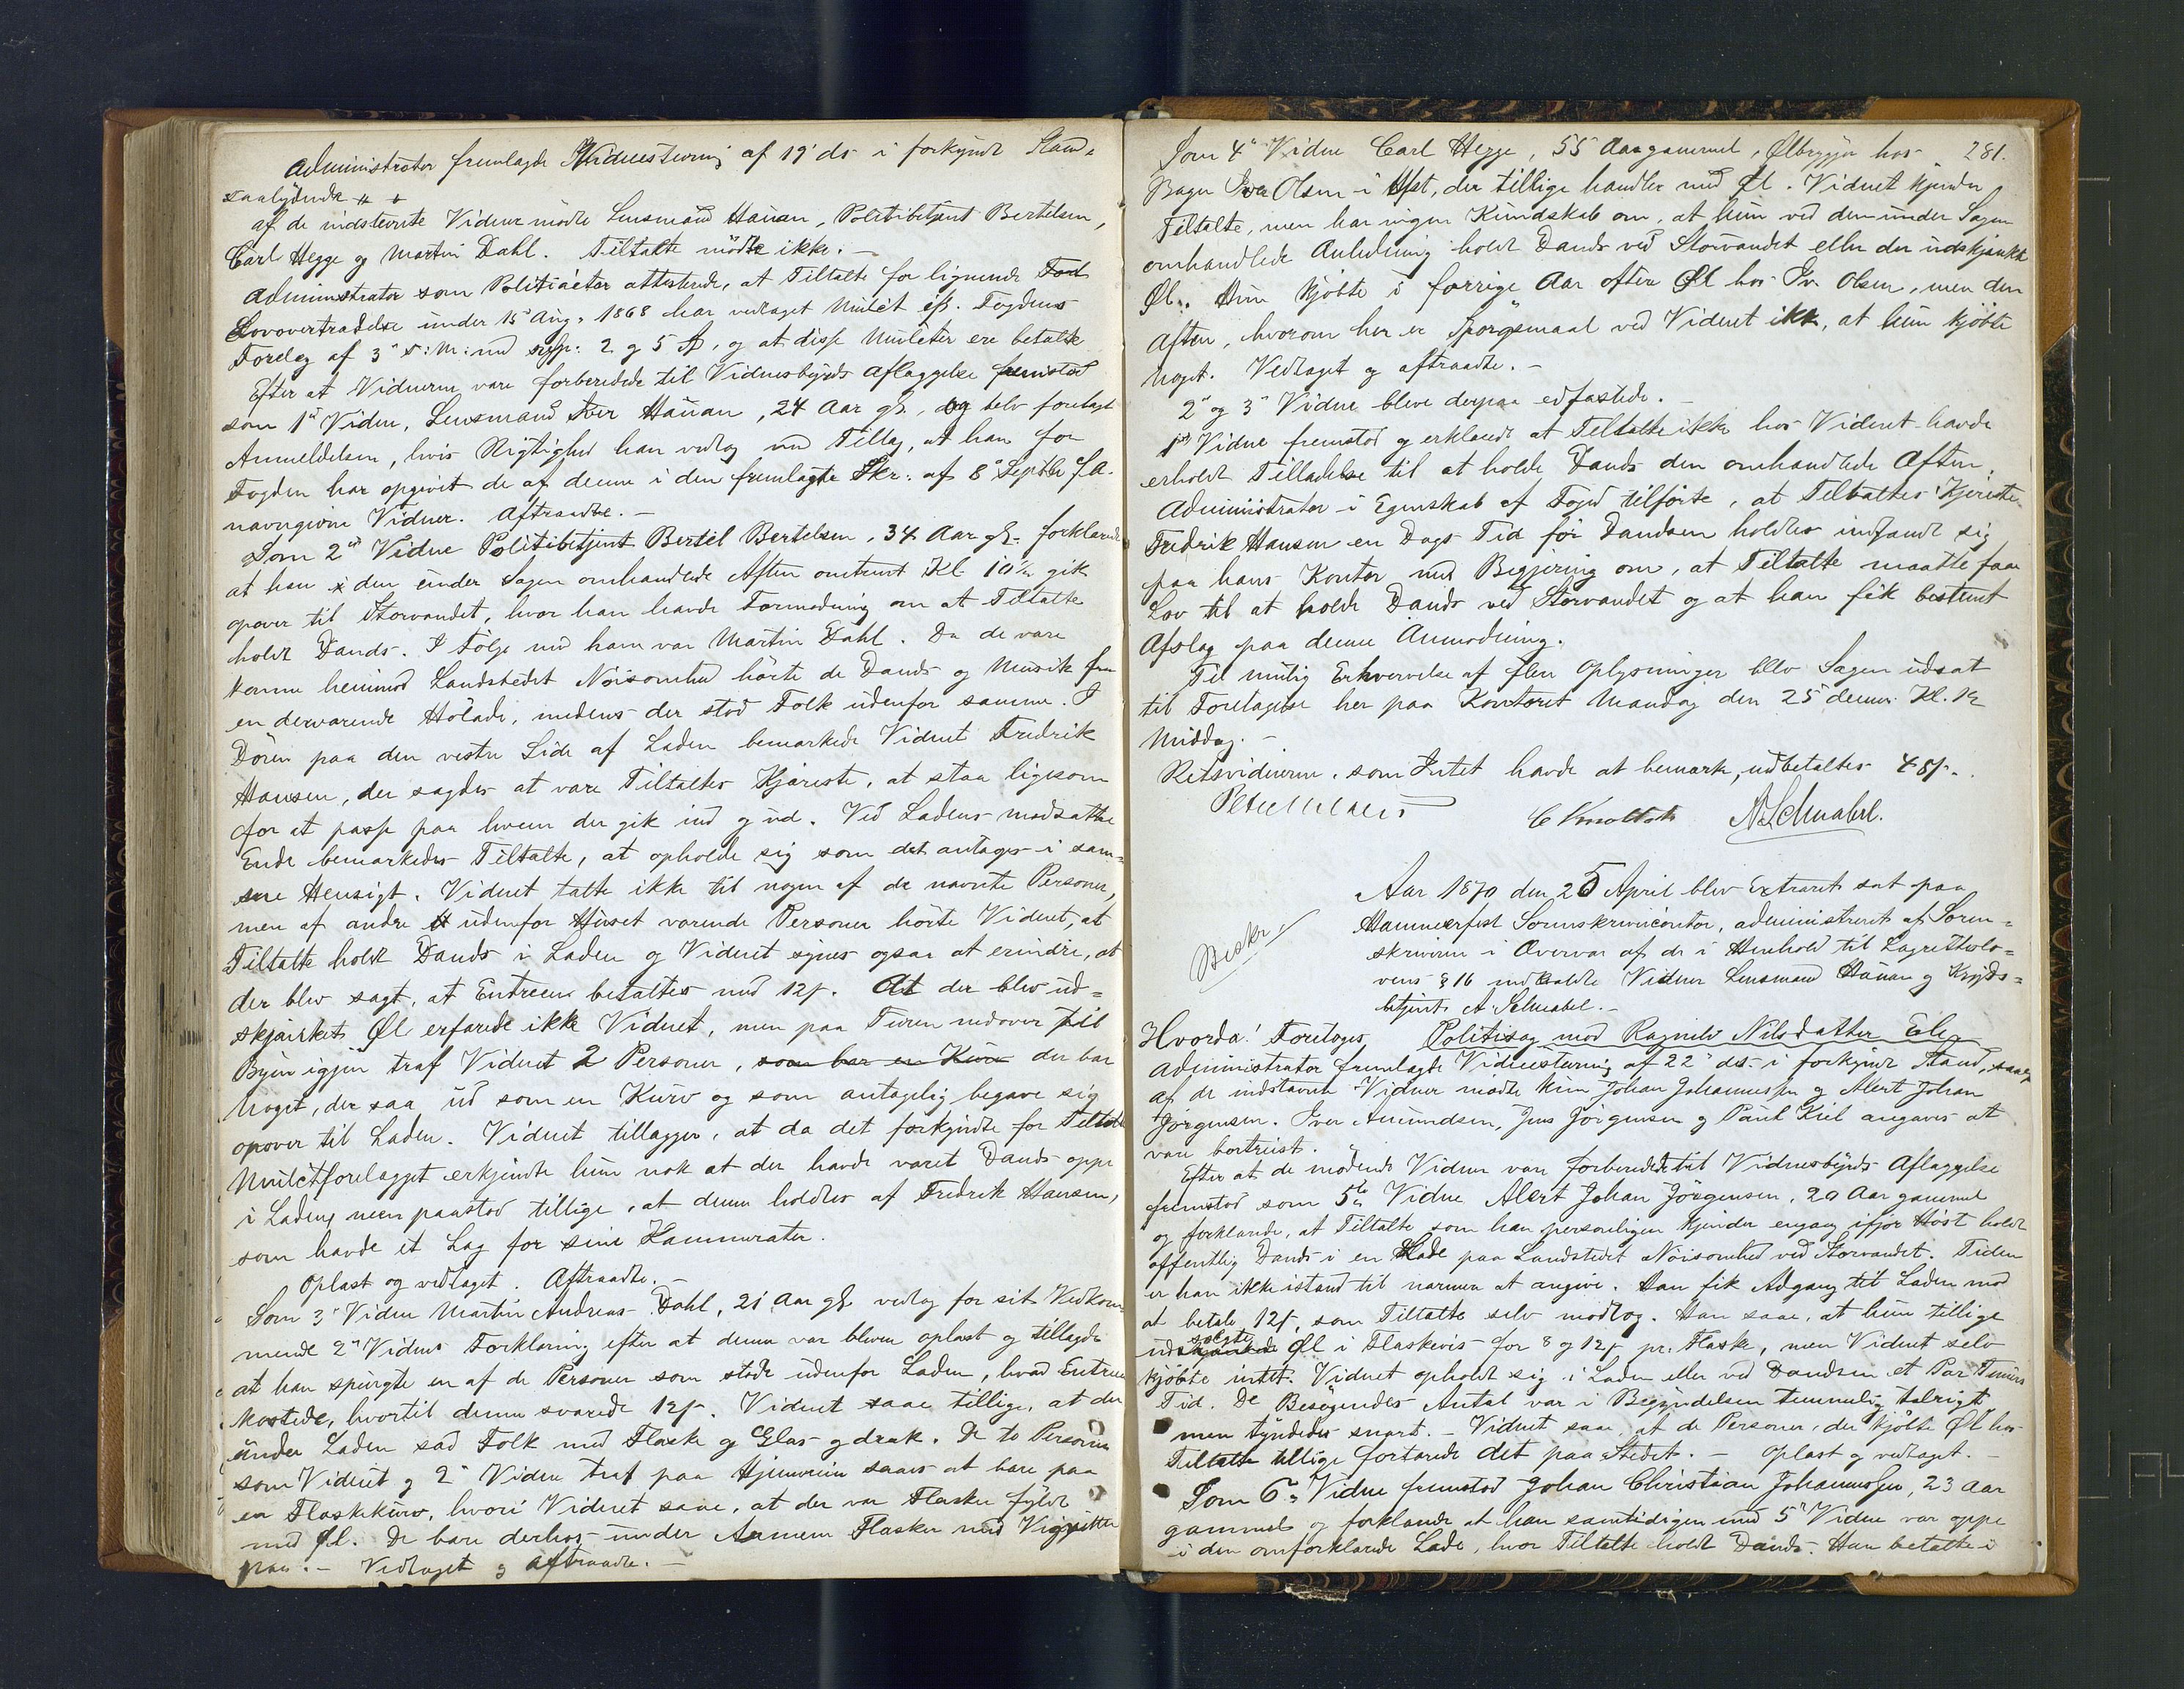 Administrator fremlagde Vidnestevning af 19' ds i forkyndt Stand
saalydende # +
af de indstevnte Vidner mødte Lensmand Hauan, Politibetjent Bertelsen,
Carl Hegge og Martin Dahl. Tiltalte mødte ikke. –
Administrator som Politiactor attesterede, at Tiltalte for lignende
Lovovertrædelse under 15' Aug. 1868 har vedtaget Mulct eft. Fogdens
Forelæg af 3' s: M: med resp: 2 og 5 , og at disse Mulcter ere betalte
Efter at Vidnerne vare forberedede til Vidnesbyrds Aflæggelse fremstod
som 1st Vidne, Lensmand Iver Hauan, 24 Aar gl., og blev forelagt
Anmeldelsen, hvis Rigtighed han vedtog med Tillæg, at han for
Fogden har opgivet de af denne i den fremlagte Skr: af 8' Septbr f. A.
navngivne Vidner. Aftraadte. –
Som 2det Vidne Politibetjent Bertel Bertelsen, 34 Aar gl. forklarede
at han i den under Sagen omhandlede Aften omtrent Kl. 10½ gik
opover til Storvandet, hvor han havde Formodning om at Tiltalte
holdt Dands. I Følge med ham var Martin Dahl. Da de vare
komne henimod Landstedet Nøisomhed hørte de Dands og Musik fra
en derværende Hølade, medens der stod Folk udenfor samme. I
Døren paa den vestre Side af Laden bemærkede Vidnet Fredrik
Hansen, der sagdes at være Tiltaltes Kjæreste, at staa ligesom
for at passe paa hvem der gik ind og ud. Ved Ladens modsatte
Ende bemærkedes Tiltalte, at opholde sig som det antages i sam=
me Hensigt. Vidnet talte ikke til nogen af de nævnte Personer,
men af andre udenfor Huset værende Personer hørte Vidnet, at
Tiltalte holdt Dands i Laden og Vidnet synes ogsaa at erindre, at
der blev sagt, at Entreen betaltes med 12 s. At der blev ud=
skjænket Øl erfarede ikke Vidnet, men paa Turen nedover til
Byen igjen traf Vidnet 2 Personer, som bar en Kurv der bar
Noget, der saa ud som en Kurv og som antagelig begave sig
opover til Laden. Vidnet tillægger, at da det forkyndte for Tiltalte
Mulctforelægget erkjendte hun nok at der havde været Dands oppe
i Laden, men paastod tillige, at denne holdtes af Fredrik Hansen,
som havde et Lag for sine Kammerater.
Oplæst og vedtaget. Aftraadte. –
Som 3' Vidne Martin Andreas Dahl, 21 Aar gl. vedtog for sit Vedkom
mende 2' Vidnes Forklaring efter at denne var bleven oplæst og tillagde
at han spurgte en af de Personer som stode udenfor Laden, hvad Entreen
kostede, hvortil denne svarede 12 s. Vidnet saae tillige, at der
under Laden sad Folk med Flaske og Glas og drak. De to Personer
som Vidnet og 2' Vidne traf paa Hjemveien saaes at bære paa
en Flaskekurv, hvori Vidnet saae, at der var Flasker fyldt
med Øl. De bare derhos under Armene Flasker med
paa. – Vedtaget og aftraadte. –
281.
Som 4' Vidne Carl Hegge, 55 Aar gammel, Ølbrygger hos
Bager Iver Olsen i Hfst, der tillige handler med Øl. Vidnet kjender
Tiltalte, men har ingen Kundskab om, at hun ved den under Sagen
omhandlede Anledning holdt Dands ved Storvandet eller der udskjænkede
Øl. Hun kjøbte i forrige Aar oftere Øl hos Iv. Olsen, men den
Aften, hvorom her er Spørgsmaal ved Vidnet ikke, at hun kjøbte
noget. Vedtaget og aftraadte. –
2' og 3' Vidne bleve derpaa edfæstede. –
1ste Vidne fremstod og erklærede at Tiltalte ikke hos Vidnet havde
erholdt Tilladelse til at holde Dands den omhandlede Aften.
Administrator i Egenskab af Foged tilførte, at Tiltaltes Kjæreste
Fredrik Hansen en Dags Tid før Dandsen holdtes indfandt sig
paa hans Kontor med Begjering om, at Tiltalte maatte faa
Lov til at holde Dands ved Storvandet og at han fik bestemt
Afslag paa denne Anmodning.
Til mulig Erhvervelse af flere Oplysninger blev Sagen udsat
til Foretagelse her paa Kontoret Mandag den 25 dennes Kl. 12
Middag. –
Retsvidnerne, som Intet havde at bemærke, udbetaltes 48 s.
A Schnabel.
Aar 1870 den 25 April blev Extraret sat paa
Hammerfest Sorenskrivercontor, administreret af Soren=
skriveren i Overvær af de i Henhold til Lagrettelo=
vens § 16 indkaldte Vidner Lensmand Hauan og Kryds=
betjent A. Schnabel. –
Beskr.
Hvorda! Foretoges Politisag mod Ragnild Nilsdatter
Administrator fremlagde Vidnestevning af 22' ds i forkyndt Stand,
af de indstævnte Vidner mødte kun Johan Johannessen og Alert Johan
Jørgensen. Iver Amundsen, Jens Jørgensen og Paul Kiil angaves at
være bortreist.
Efter at de mødende Vidner vare forberedede til Vidnesbyrds Aflæggelse
fremstod som 5te Vidne Alert Johan Jørgensen, 20 Aar gammel
og forklarede, at Tiltalte som han personligen kjender engang ifjor Høst holdt
offentlig Dands i en Lade paa Landstedet Nøisomhed ved Storvandet. Tiden
er han ikke istand til nærmere at angive. Han fik Adgang til Laden mod
at betale 12 s, som Tiltalte selv modtog. Han saae, at hun tillige
solgte
udskjænkede Øl i Flaskevis for 8 og 12 s pr. Flaske, men Vidnet selv
kjøbte intet. Vidnet opholdt sig i Laden eller ved Dandsen et Par Timers
Tid. De Besøgendes Antal var i Begyndelsen temmelig talrigt
men tyndedes snart. – Vidnet saae, at de Personer, der kjøbte Øl hos
Tiltalte tillige fortærede det paa Stedet. – Oplæst og vedtaget. –
Som 6' Vidne fremstod Johan Christian Johannessen, 23 Aar
gammel og forklarede at han samtidigen med 5' Vidne var oppe
i den omforklarede Lade, hvor Tiltalte holdt Dands. Han betalte i